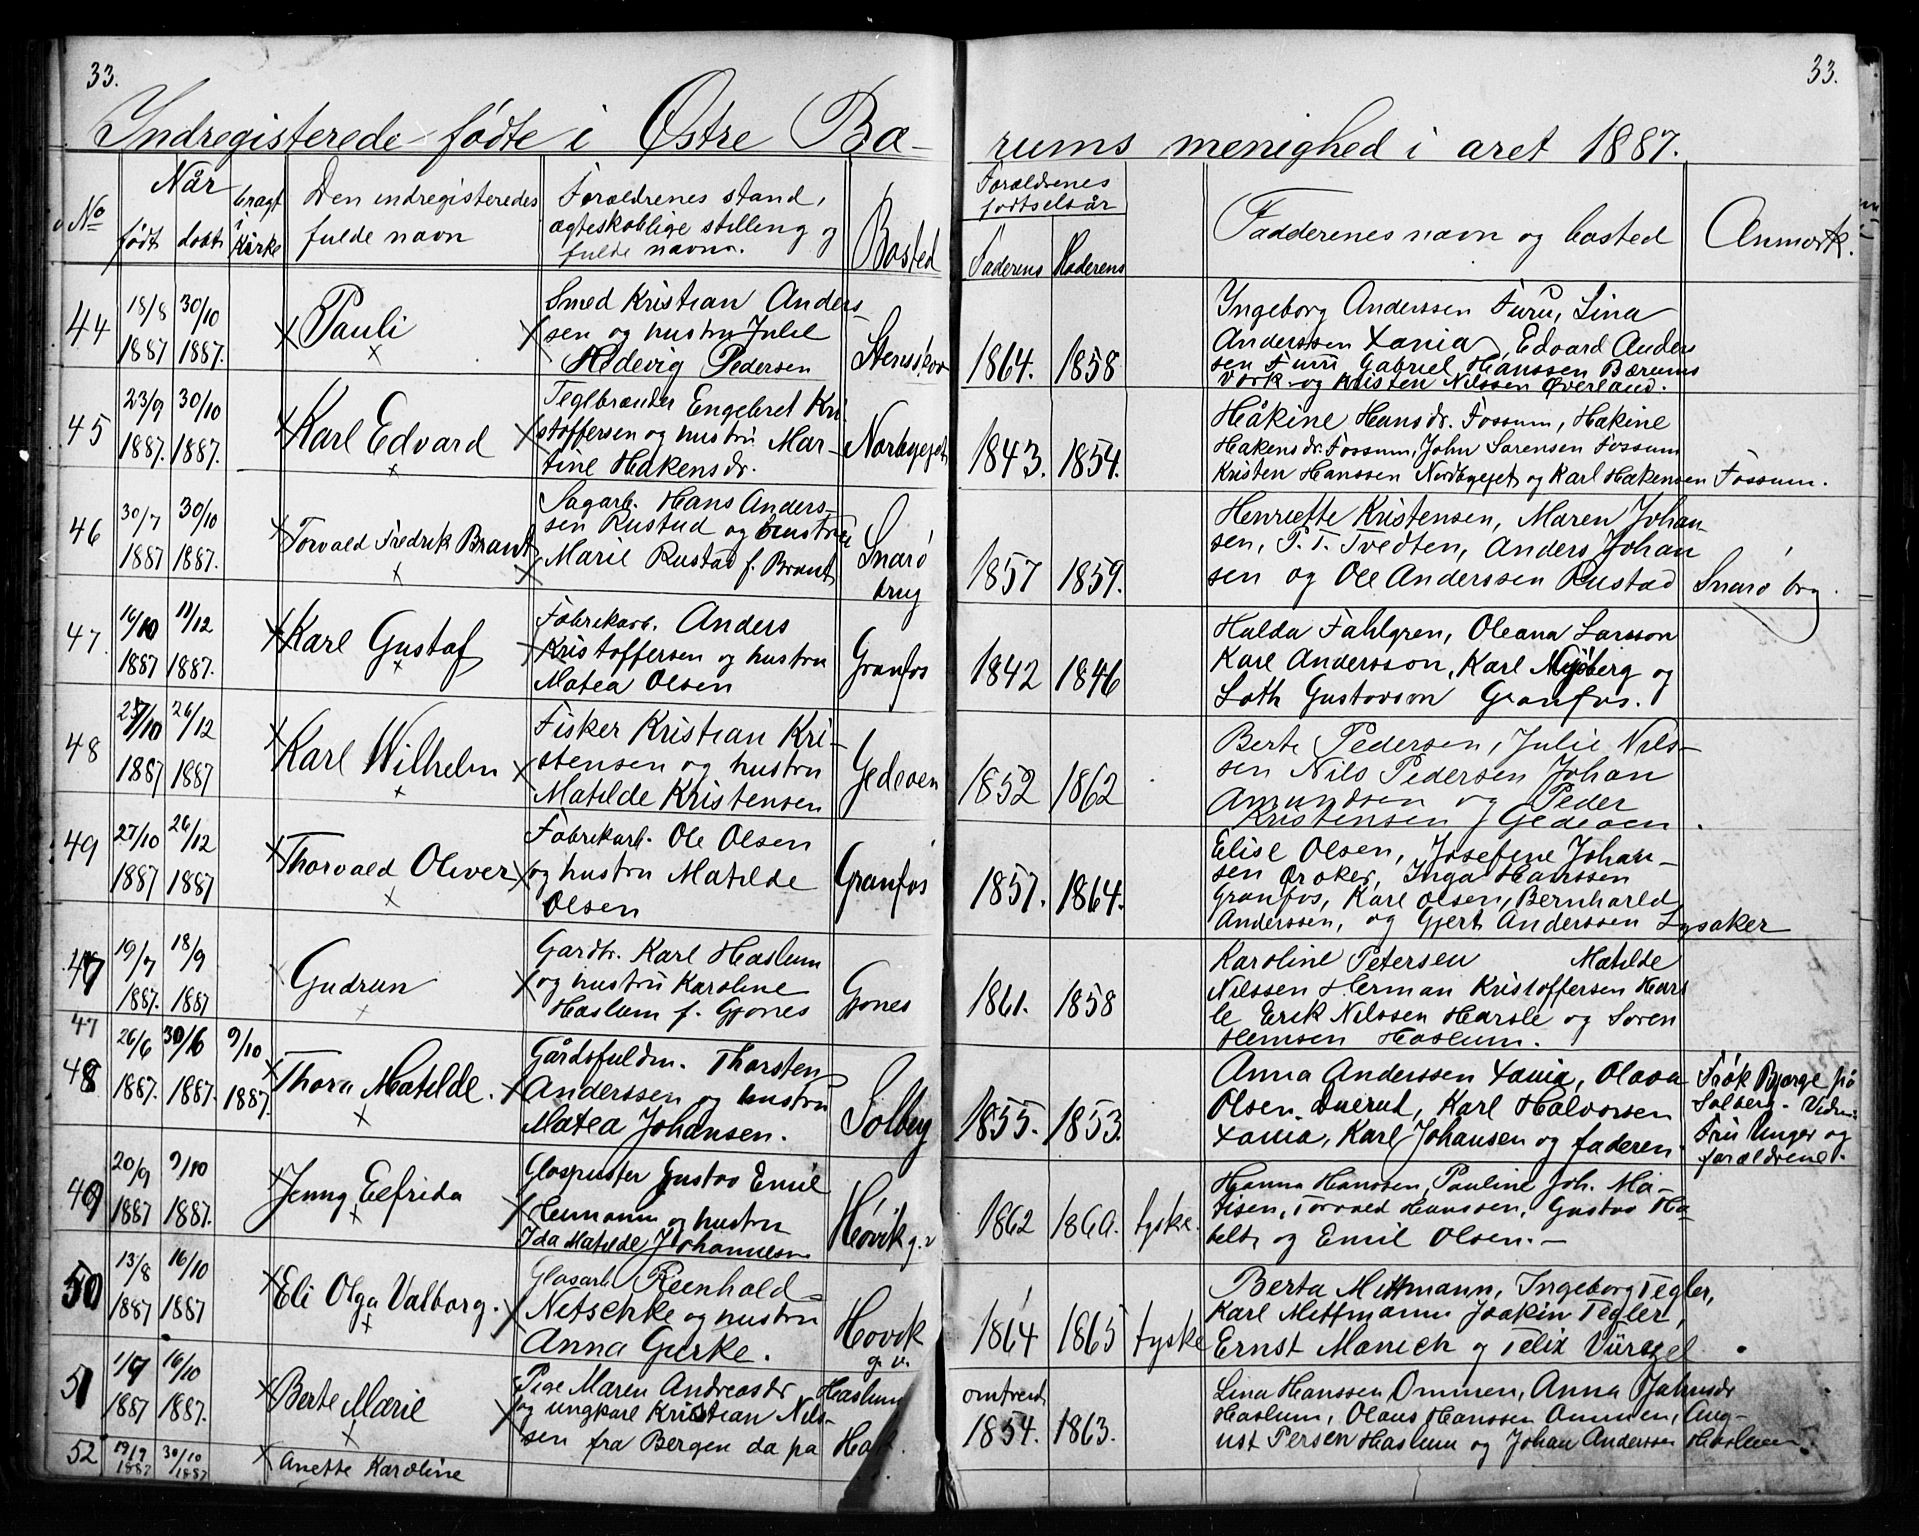 33.
33.
Indregisterede fødte i Østre Bæ-
rums menighed i aret 1887.
No
Når
født
døbt
bragt i Kirke
Den indregisteredes
fulde navn
Forældrenes stand,
ægteskablige stilling og
fulde navn.
Bosted
Forældrenes
fødtselsår
Faderens
Moderens
Faddernes navn og bosted
Anmærk.
44
18/8
1887
30/10
1887.
Pauli
Smed Kristian Anders-
sen og hustru Julie
Hedevig Pedersen
1864.
1858
Ingeborg Anderssen Furu, Lina
Anderssen Xania, Edvard Anders
sen Furu Gabriel Hanssen Bærums
Værk og Kristen Nilssen Øverland.
45
23/9
1887.
30/10
1887.
Karl Edvard
Teglbrænder Engebret Kri
stoffersen og hustru Mar-
tine Hakensdr.
Norbygejet
1843.
1854.
Håkine Hansdr. Fossum, Hakine
Hakensdr. Fossum, John Sørensen Fossum
Kristen Hanssen Nordbygejet og Karl Hakensen Fossum.
46
30/7
1887
30/10
1887.
Torvald Fredrik Brant
Sagarb. Hans Anders-
sen Rustad og hustru
Marie Rustad f. Brant
Snarø
brug
1857
1859.
Henriette Kristensen, Maren Johan-
sen, P. T. Tvedten, Anders Johan
sen og Ole Anderssen Rustad Snarø brg.
47.
16/10
1887
11/12
1887.
Karl Gustaf
Fabrikarb. Anders
Kristoffersen og hustru
Matea Olsen
Granfos
1842
1846
Hulda Fahlgren, Oleana Larsson
Karl Andersson, Karl Nyberg og
Loth Gustavson Granfos.
48
1887
26/12
1887
Karl Wilhelm
Fisker Kristian Kri-
stensen og hustru
Matilde Kristensen
Gedeoen
1852
1862
Berte Pedersen, Julie Nils-
sen Nils Pedersen Johan
Amundsen og Peder
Kristensen Gedeoen.
49
27/10
1887
26/12
1887
Thorvald Oliver
Fabrikarb. Ole Olsen
og hustru Matilde
Olsen
Granfos
1857.
1864.
Elise Olsen, Josefine Johan-
sen Øraker, Inga Hanssen
Granfos, Karl Olsen, Bernhard
Anderssen, og Gjert Anderssen Lysaker
47
19/7
1887.
18/9
1887
Gudrun
Gardbr. Karl Haslum
og hustru Karoline
Haslum f. Gjønes
Gjønes
1861.
1858
Karoline Petersen Matilde
Nilssen Herman Kristoffersen Hars
le Erik Nilssen Harsle og Søren
Hemsen Haslum.
47
48
26/6
1887.
30/6
1887.
9/10
1887.
Thora Matilde.
Gårdsfuldm. Thorsten
Anderssen og hustru
Matea Johansen.
Solberg
1855.
1853.
Anna Anderssen Xania, Olava
Olsen Duerud, Karl Halvorsen
Xania, Karl Johansen og faderen.
Frøk Bjørge på
Solberg.
Fru Unger og
forældrene.
49
20/9
1887
9/10
1887.
Jenny Elfrida
Glaspuster Gustav Emil
Heimann og hustru
Ida Matilde Johannesen
Høvik g.v
1862
1860.
tyske.
Hanna Hanssen, Pauline Joh. Ma-
tisen, Torvald Hanssen, Gustav Ha-
belt, og Emil Olsen.-
50
13/8
1887
16/10
1887
Eli Olga Valborg.
Glasarb. Reinhold
Nitschke og hustru
Anna Gurke.
Høvik
g. v.
1864
1865
tyske
Berta Mittmann, Ingeborg Tegler,
Karl Mittmann Joakin Tegler,
Ernst Manich og Felix Würzel
51
1/9
1887
16/10
1887.
Berte Marie
Pige Maren Andreasdr
og ungkarl Kristian Nils-
sen fra Bergen da på
Haslum
Hak.
omtrent
1854.
1863.
Lina Hanssen Ommen, Anna Jahnsdr
Haslum, Olaus Hanssen Ommen, Aug-
ust Persen Haslum og Johan Anderssen Haslum.
52
19/9
1887
30/10
1887
Anette Karoline